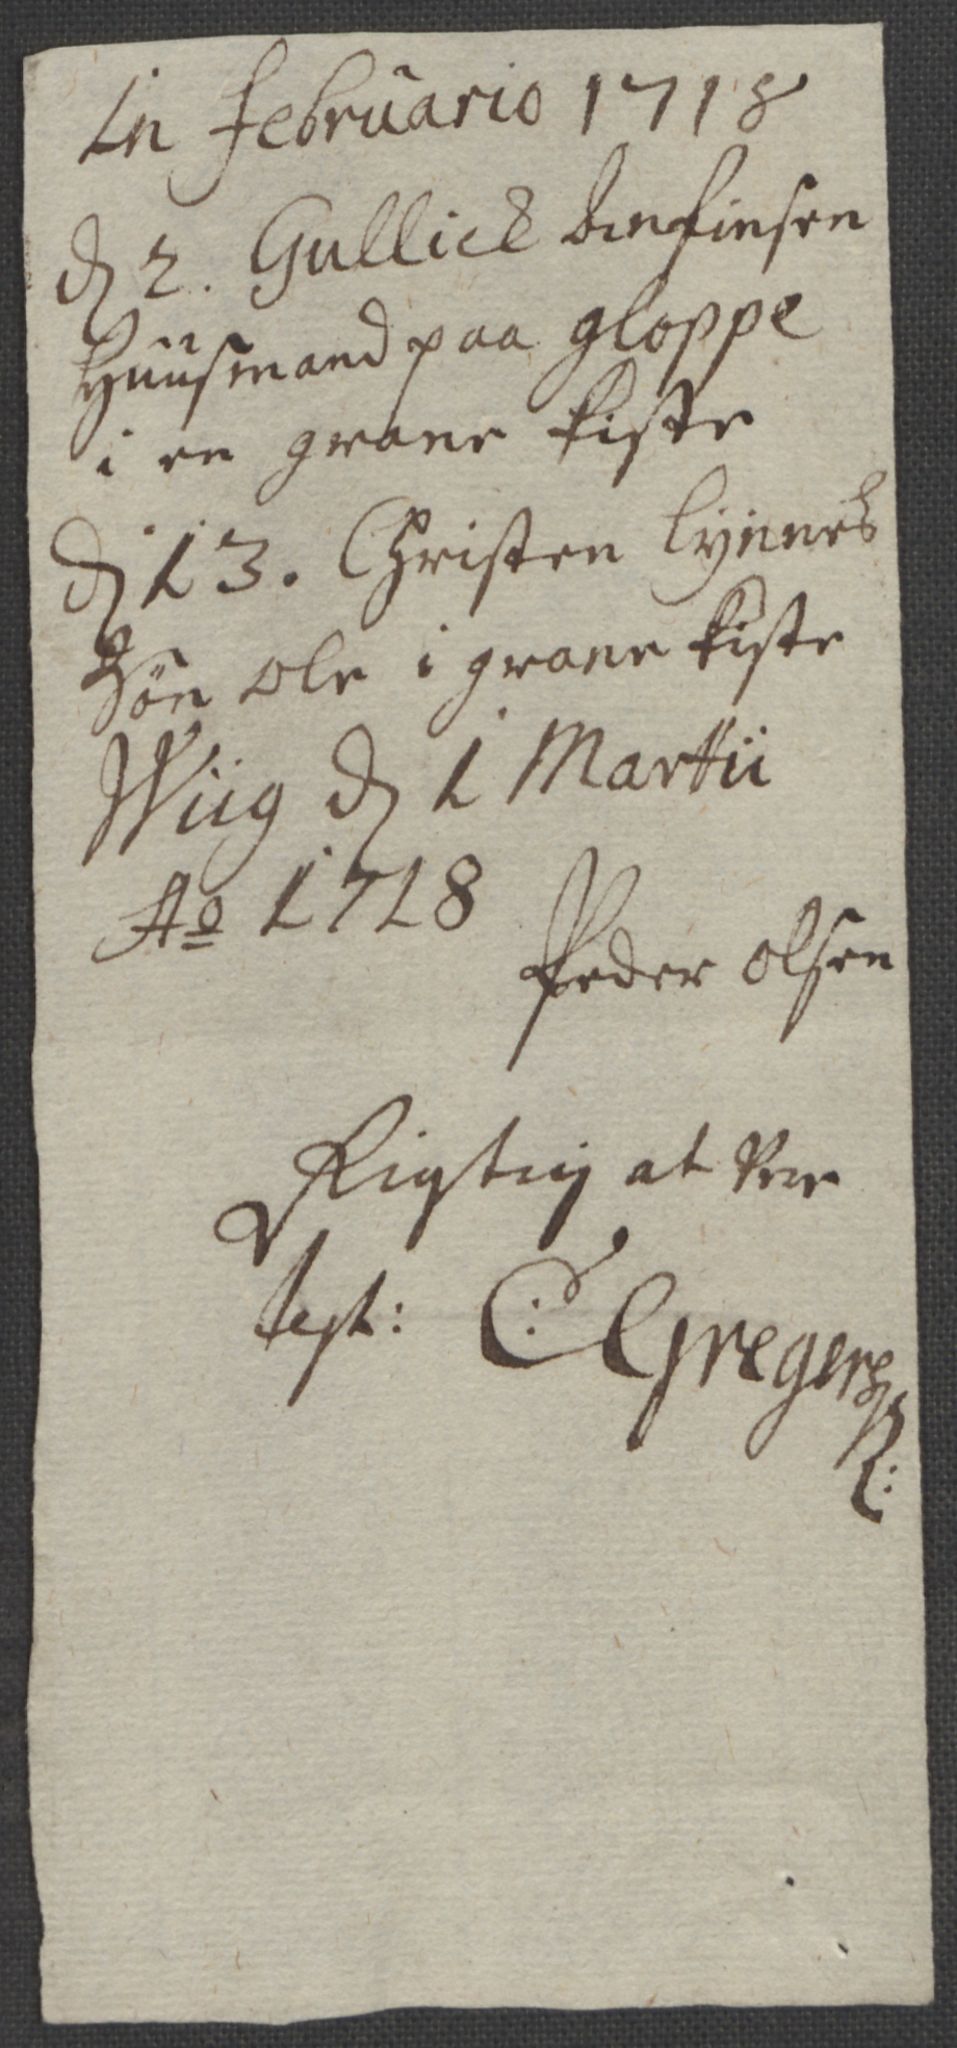 In Februario 1718
d 2. Gullick Denfinsen
Huusmand paa gloppe
i en grane kiste
d 13. Christen Lynnes
Søn Ole i grane kiste
Wiig d 1 Martii
Ao 1718
Peder Olsen
Rigtig at være
test: C: Gregers